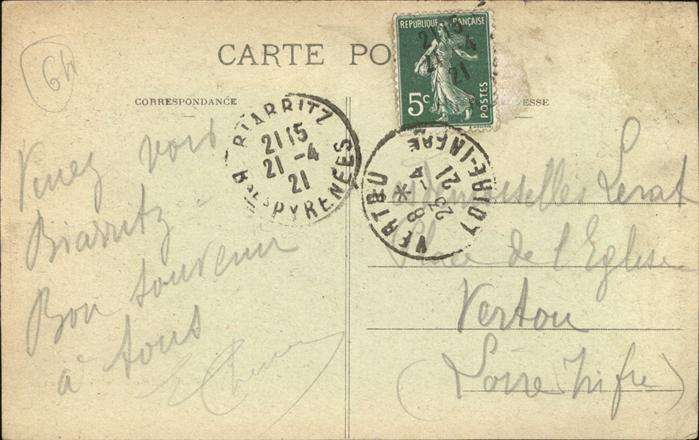 64
CARTE PO
CORRESPONDANCE
ESSE
REPUBLIQUE FRANÇAISE
21 15
21 -4
21
5c
POSTES
BIARRITZ
21 15
21 -4
21
Bses PYRENÉES
VERTOU
LOIRE-INFRE
8 *
23 -4
21
Venez voir
Biarritz -
Bon souvenir
à tous
demoiselles Lerat
Place de l'Eglise
Vertou
(Loire Infre)